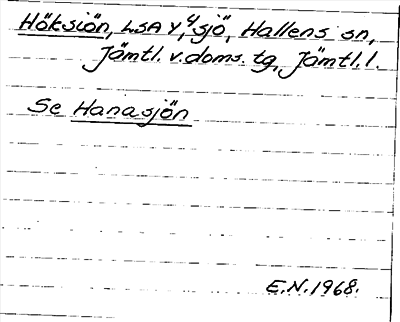 Höksjön, LSA Y, 4 sjö, Hallens sn,
Jämtl. v. doms. tg, Jämtl. l.
Se Hanasjön
E.N. 1968.